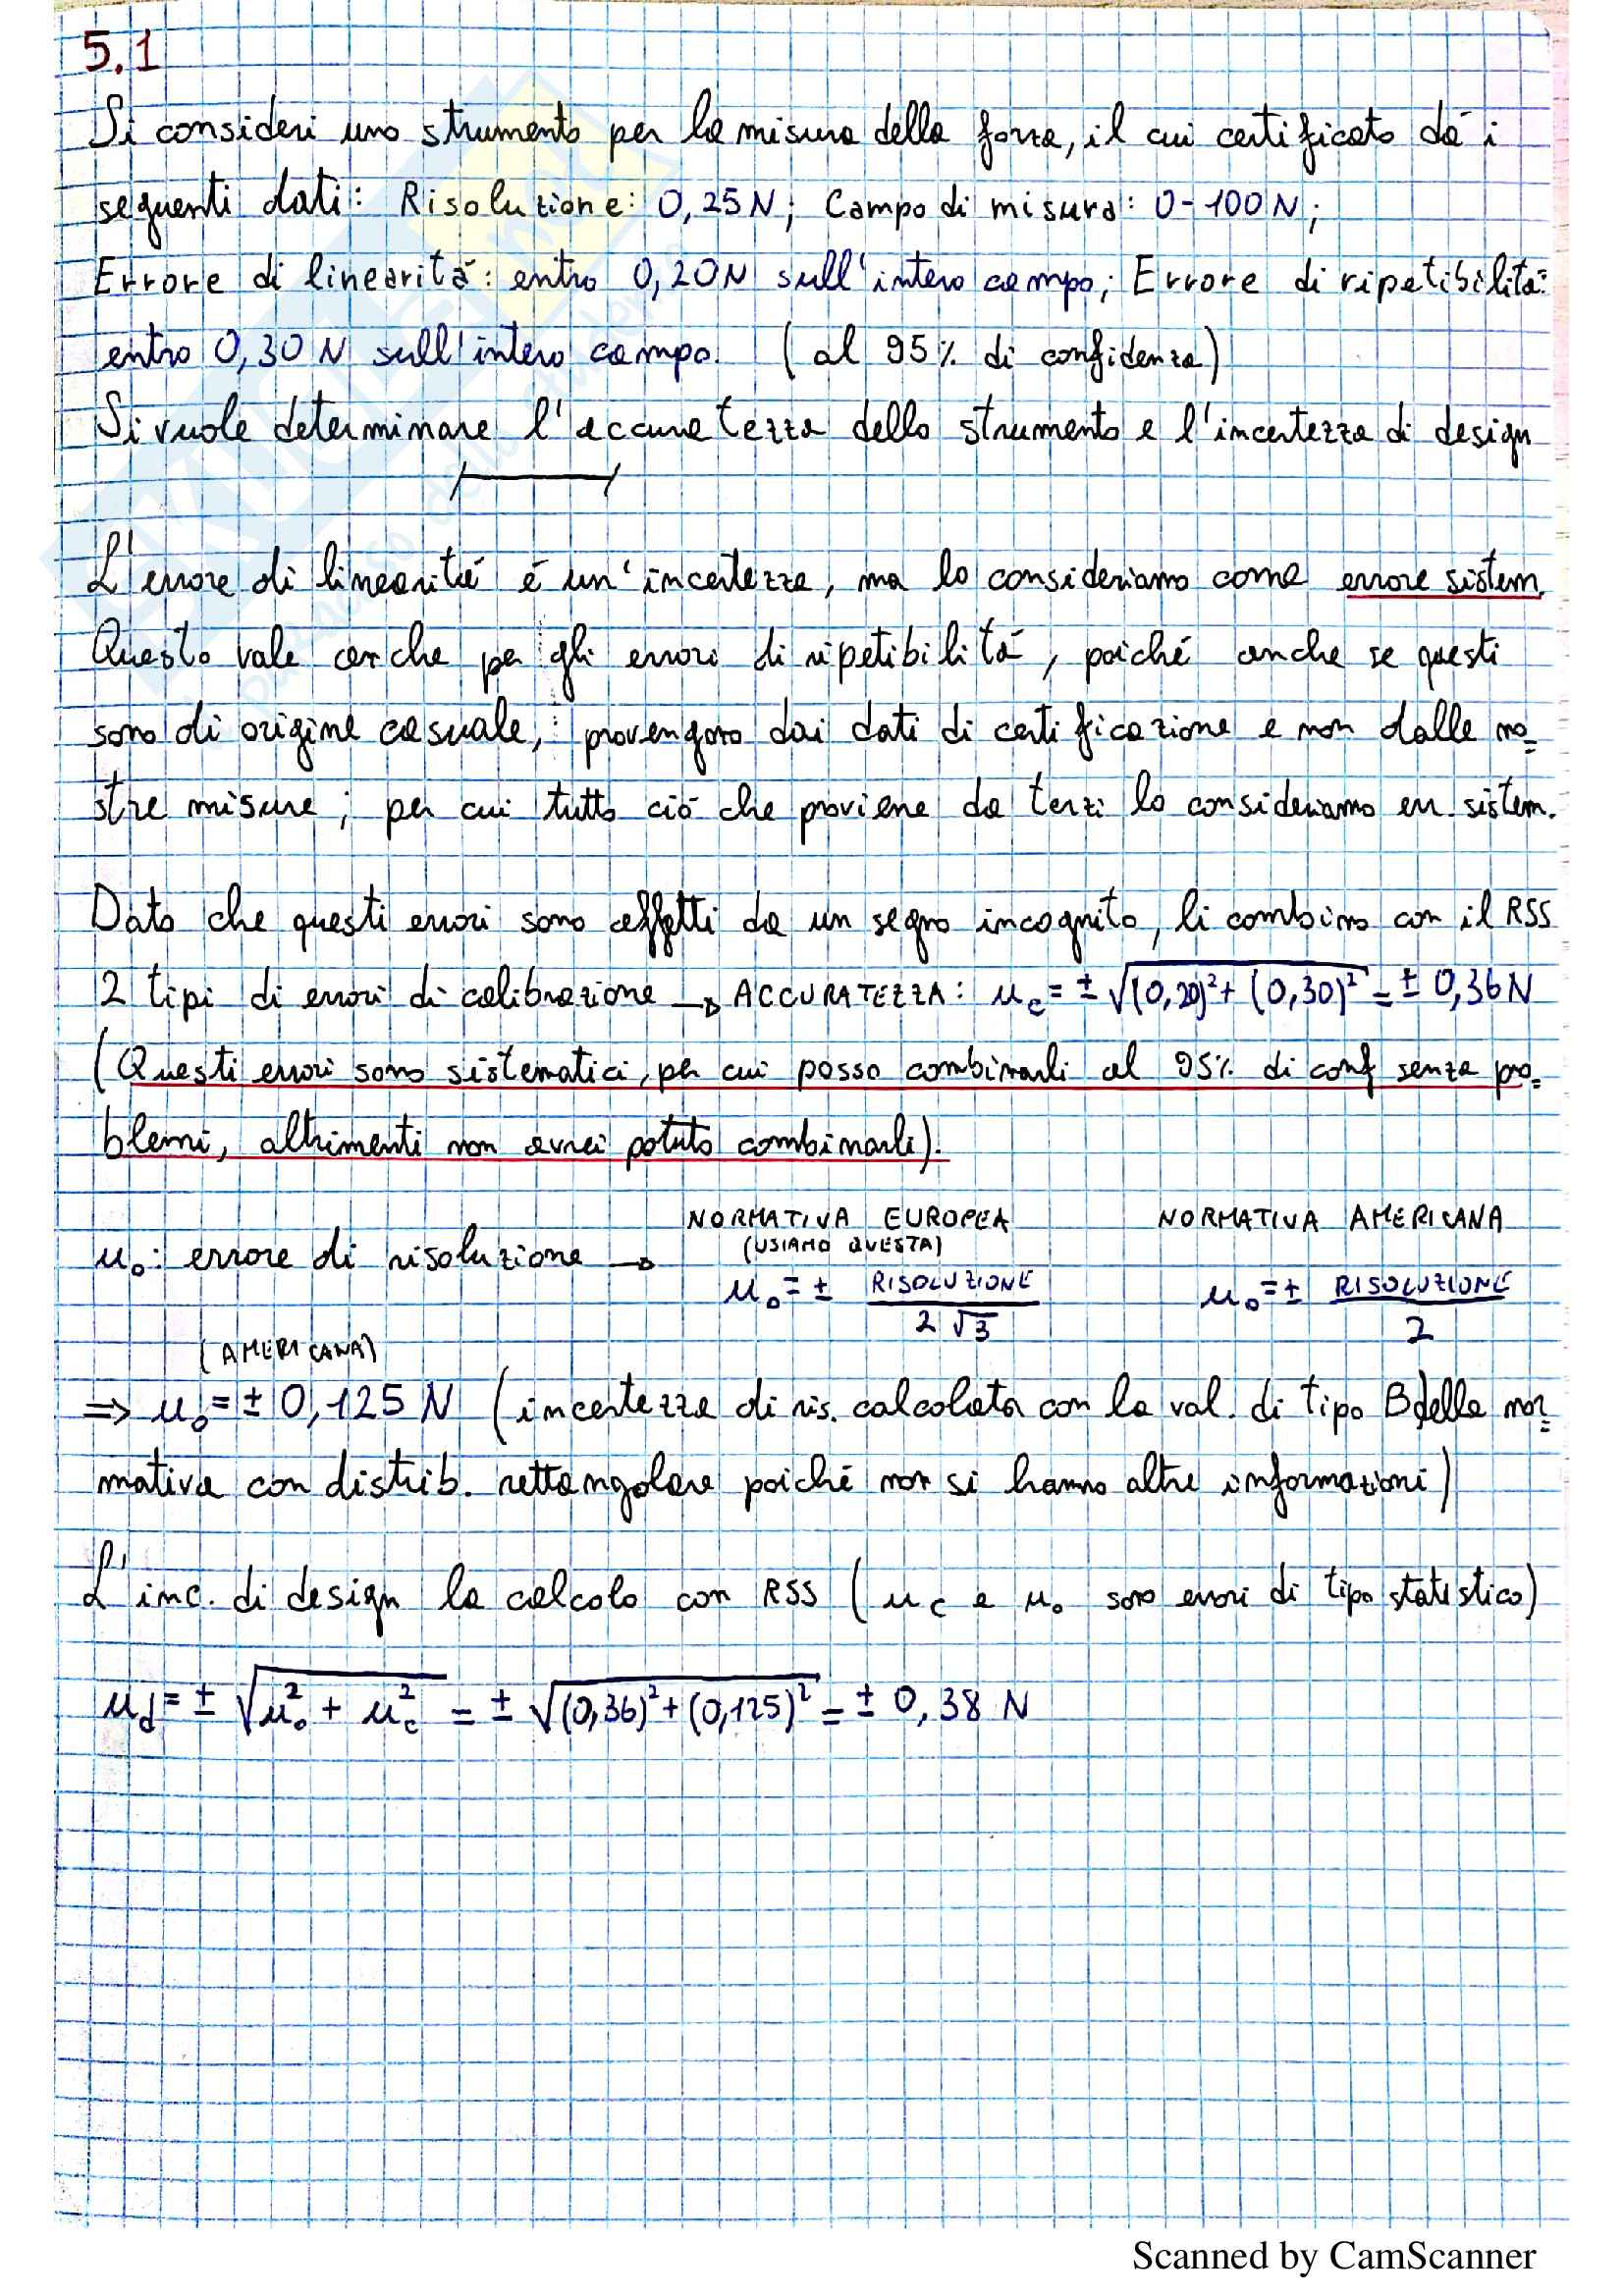 5.1
Si consideri uno strumento per la misura della forza, il cui certificato dà i
seguenti dati: Risoluzione: 0,25N; Campo di misura: 0-100N;
Errore di linearità: entro 0,20N sull'intero campo; Errore di ripetibilità:
entro 0,30N sull'intero campo. (al 95% di confidenza)
Si vuole determinare l'accuratezza dello strumento e l'incertezza di design
L'errore di linearità è un'incertezza, ma lo consideriamo come errore sistem.
Questo vale anche per gli errori di ripetibilità, poiché anche se questi
sono di origine casuale, provengono dai dati di certificazione e non dalle no=
stre misure; per cui tutto ciò che proviene da terzi lo consideriamo err. sistem.
Dato che questi errori sono affetti da un segno incognito, li combino con il RSS
2 tipi di errori di calibrazione → ACCURATEZZA: u_c = ± √((0,20)² + (0,30)²) = ± 0,36N
(Questi errori sono sistematici, per cui posso combinarli al 95% di conf senza pro=
blemi, altrimenti non avrei potuto combinarli).
NORMATIVA EUROPEA NORMATIVA AMERICANA
(USIAMO QUESTA)
u_0: errore di risoluzione → u_0 = ± RISOLUZIONE / 2√3 u_0 = ± RISOLUZIONE / 2
(AMERICANA)
⇒ u_0 = ± 0,125 N (incertezza di ris. calcolata con la val. di tipo B della nor=
mativa con distrib. rettangolare poiché non si hanno altre informazioni)
L'inc. di design la calcolo con RSS (u_c e u_0 sono errori di tipo statistico)
u_d = ± √(u_0² + u_c²) = ± √((0,36)² + (0,125)²) = ± 0,38 N
Scanned by CamScanner